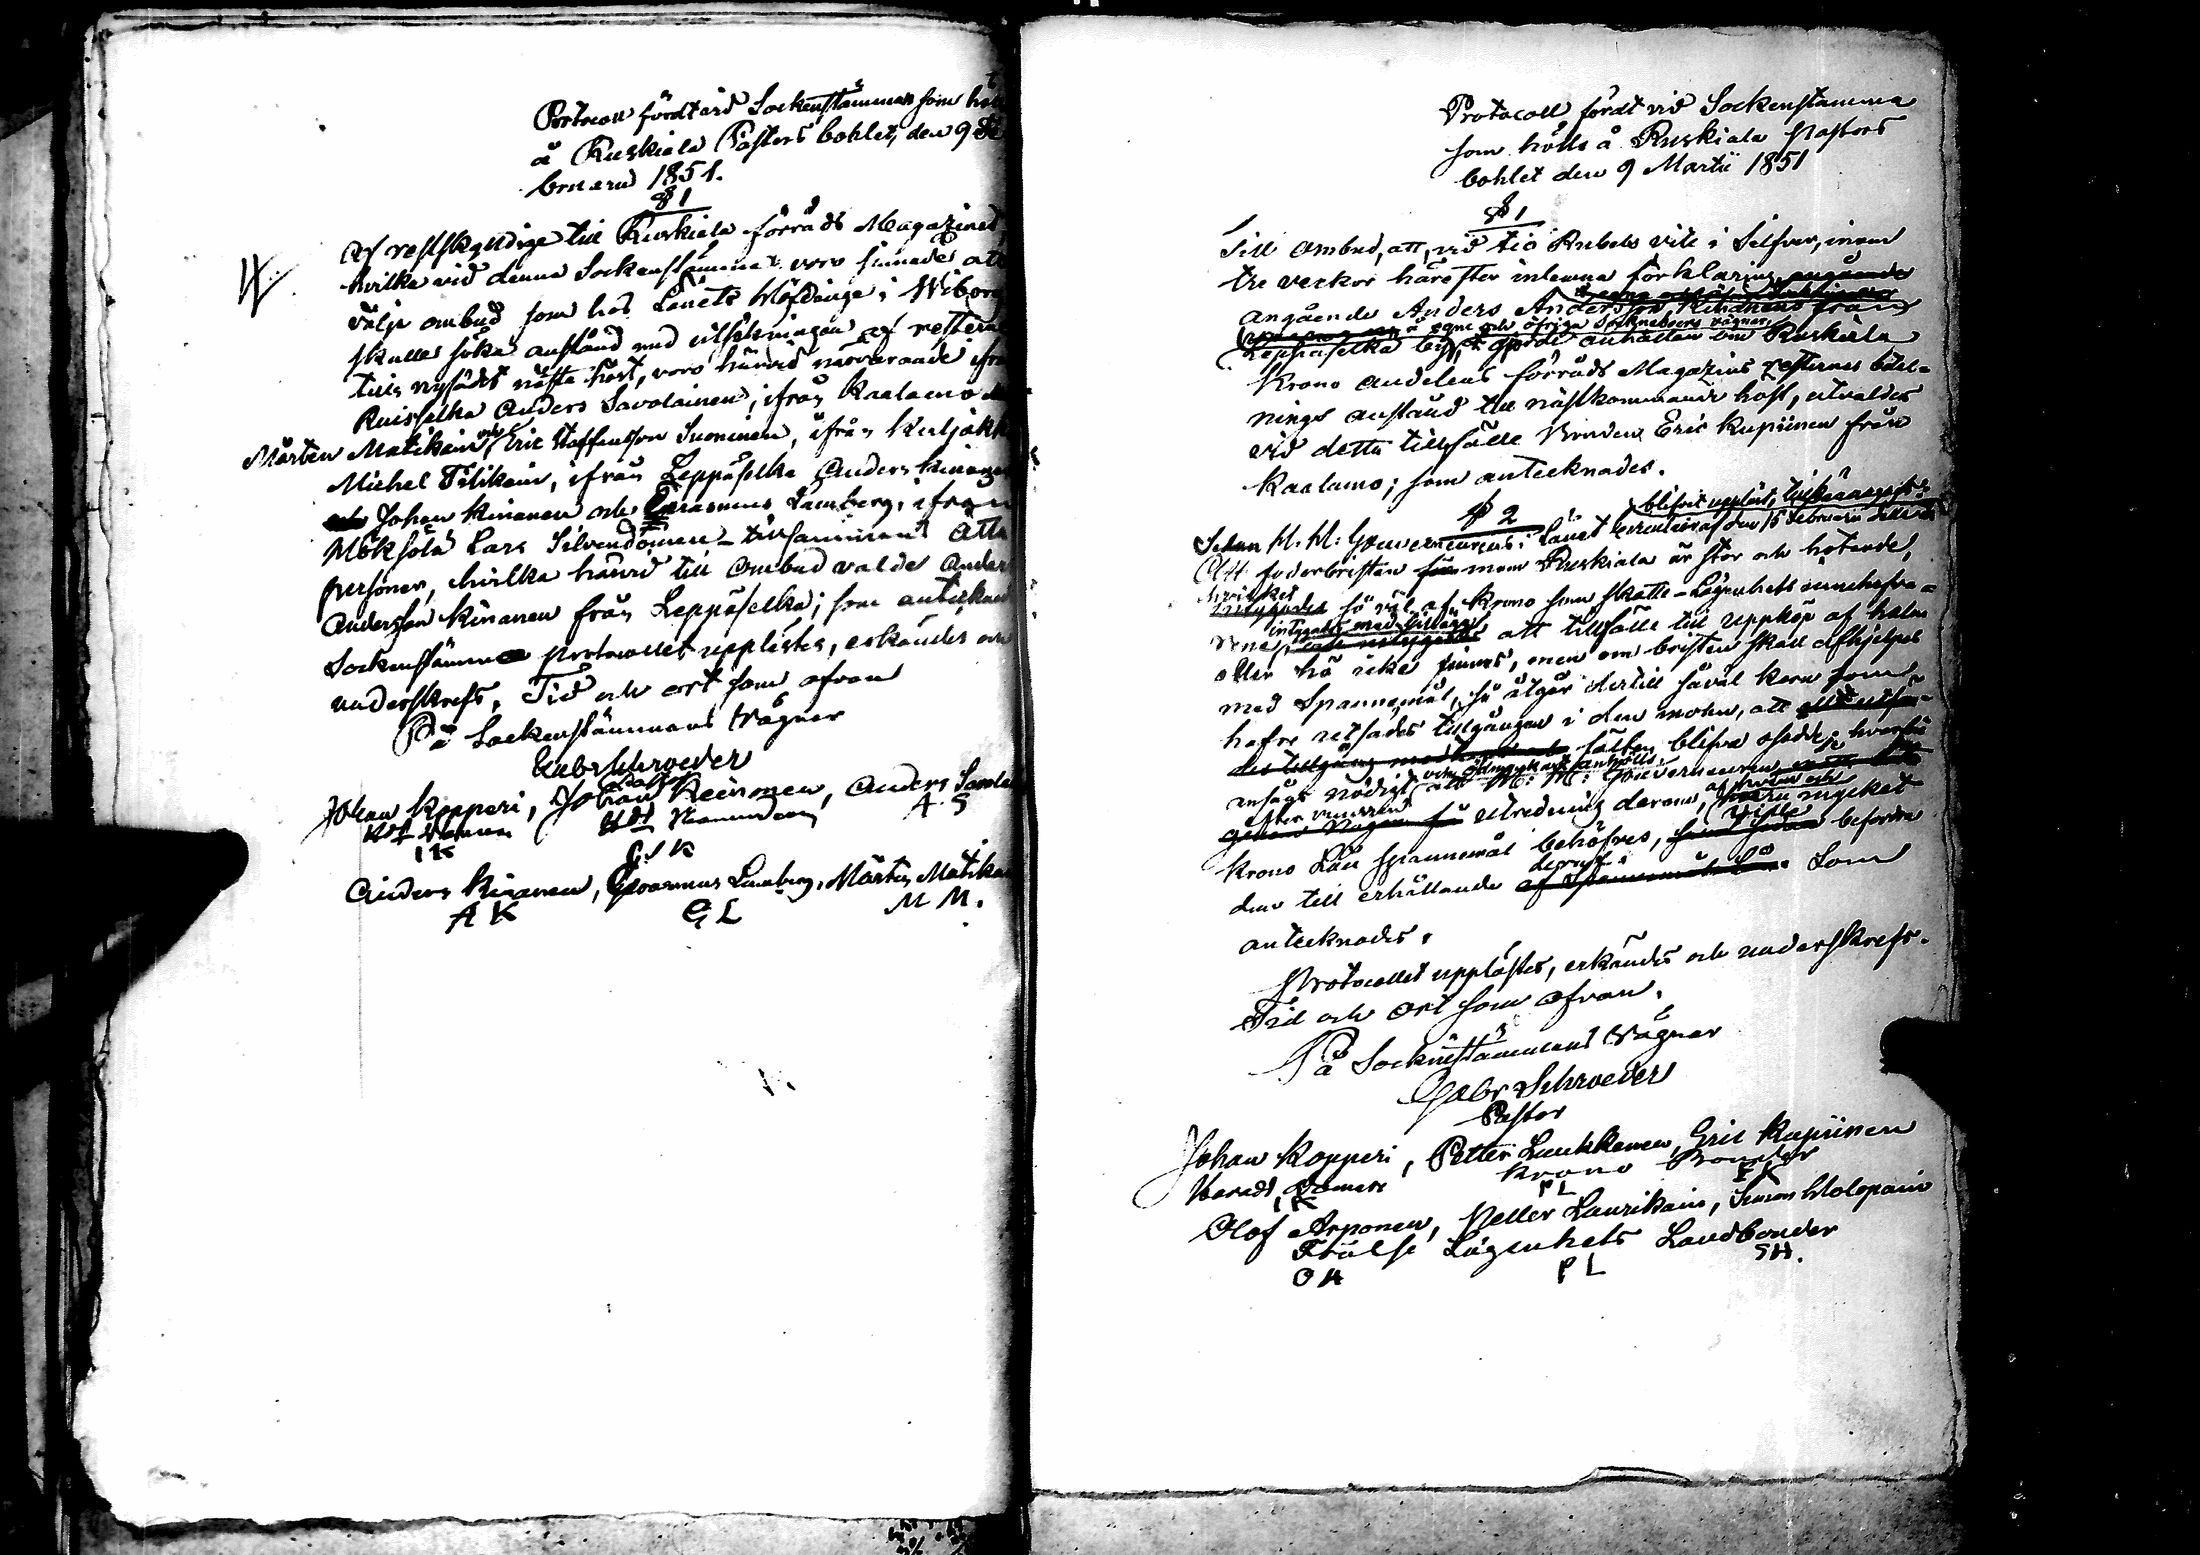 Protocoll fördt vid Sockenstämman som höl
å Ruskiala Pastors bohlet, den 9 Fe
bruarii 1851.
§ 1
Af restskyldige till Ruskiala förråds Magazinet
hvilka vid denna Sockenstämma voro sinnade att
välja ombud som hos Länets Höfdinge i Wiborg
skulle söka anstånd med utsökningen af resterna
tills nysådet nästa höst, voro härvid närvarande ifrån
Ruisselka Anders Savolainen, ifrån Kaalamo
Mårten Matikain, och Eric Staffansson Suoninen, ifrån Kirjakk
Michel Tilikain, ifrån Leppäselkä Anders Kinanen
Johan Kinanen och Grasmus Lamberg, ifrån
Möksolä Lars Silvendoinen - tillsammans Åtta
personer, hvilka härvid till Ombud valde Anders
Andersson Kinanen från Leppäselkä; som antecknad
Sockenstämme protocollet upplästes, erkändes och
underskrefs. Tid och ort som ofvan
På Sockenstämmans Vägnar
Gabr Schroeder
Pastor
Johan Kopperi, Johan Keinonen, Anders Savola
I K
A. S
Anders Kinanen, Grasmus Lamberg, Mårten Matikai
A K
G L
M M.
Protocoll fördt vid Sockenstämma
som hölls å Ruskiala Pastors
bohlet den 9 Martii 1851
§ 1
Till Ombud, att, vid tio Rubels vite i Silfver, inom
tre veckor härefter inlemna förklaring angående
angående Anders Andersson Kinanens från
å egne och öfrige Sockneboers vägnar,
Leppäselkä by, gjorde anhållan om Ruskiala
Krono andelens förråds Magazins resternes betal-
nings anstånd till nästkommande höst, utvaldes
vid detta tillfälle Bonden Eric Kupiinen från
Kaalamo; som antecknades.
§ 2
blifvit uppläst, tillkännagafs:
Sedan H. H. Gouverneurens i Länet Circulaire af den 15 Februarii
Att foderbristen inom Ruskiala är stor och hotande,
hvilket
så väl af Krono som Skatte-Lägenhets innehafva-
intygades med tillägg
rene, att tillfälle till uppköp af halm
eller hö icke finnes, men om bristen skall afhjelpas
med Spannemål, så åtgår dertill såväl korn som
hafre utsädes tillgången i den mohn, att
fälten blifva osådde; hvarför
och ödmjukast anhölls
ansågs nödigt att H: H: Gouverneuren
efter vunnen utredning derom, huru mycket
Krono Lån spannemål behöfves, befordra
dem till erhållande deraf. Som
antecknades.
Protocollet upplästes, erkändes och underskrefs.
Tid och Ort som ofvan.
På Sockenstämmans Vägnar
Gabr Schroeder
Pastor
Johan Kopperi, Petter Laukkanen, Eric Kupiinen
Härads Dömare Krono Bonder
I K
P L
E K
Olof Arponen, Petter Laurikain, Simon Holopain
Frälse Lägenhets Landbonder
O A
P L
S H.